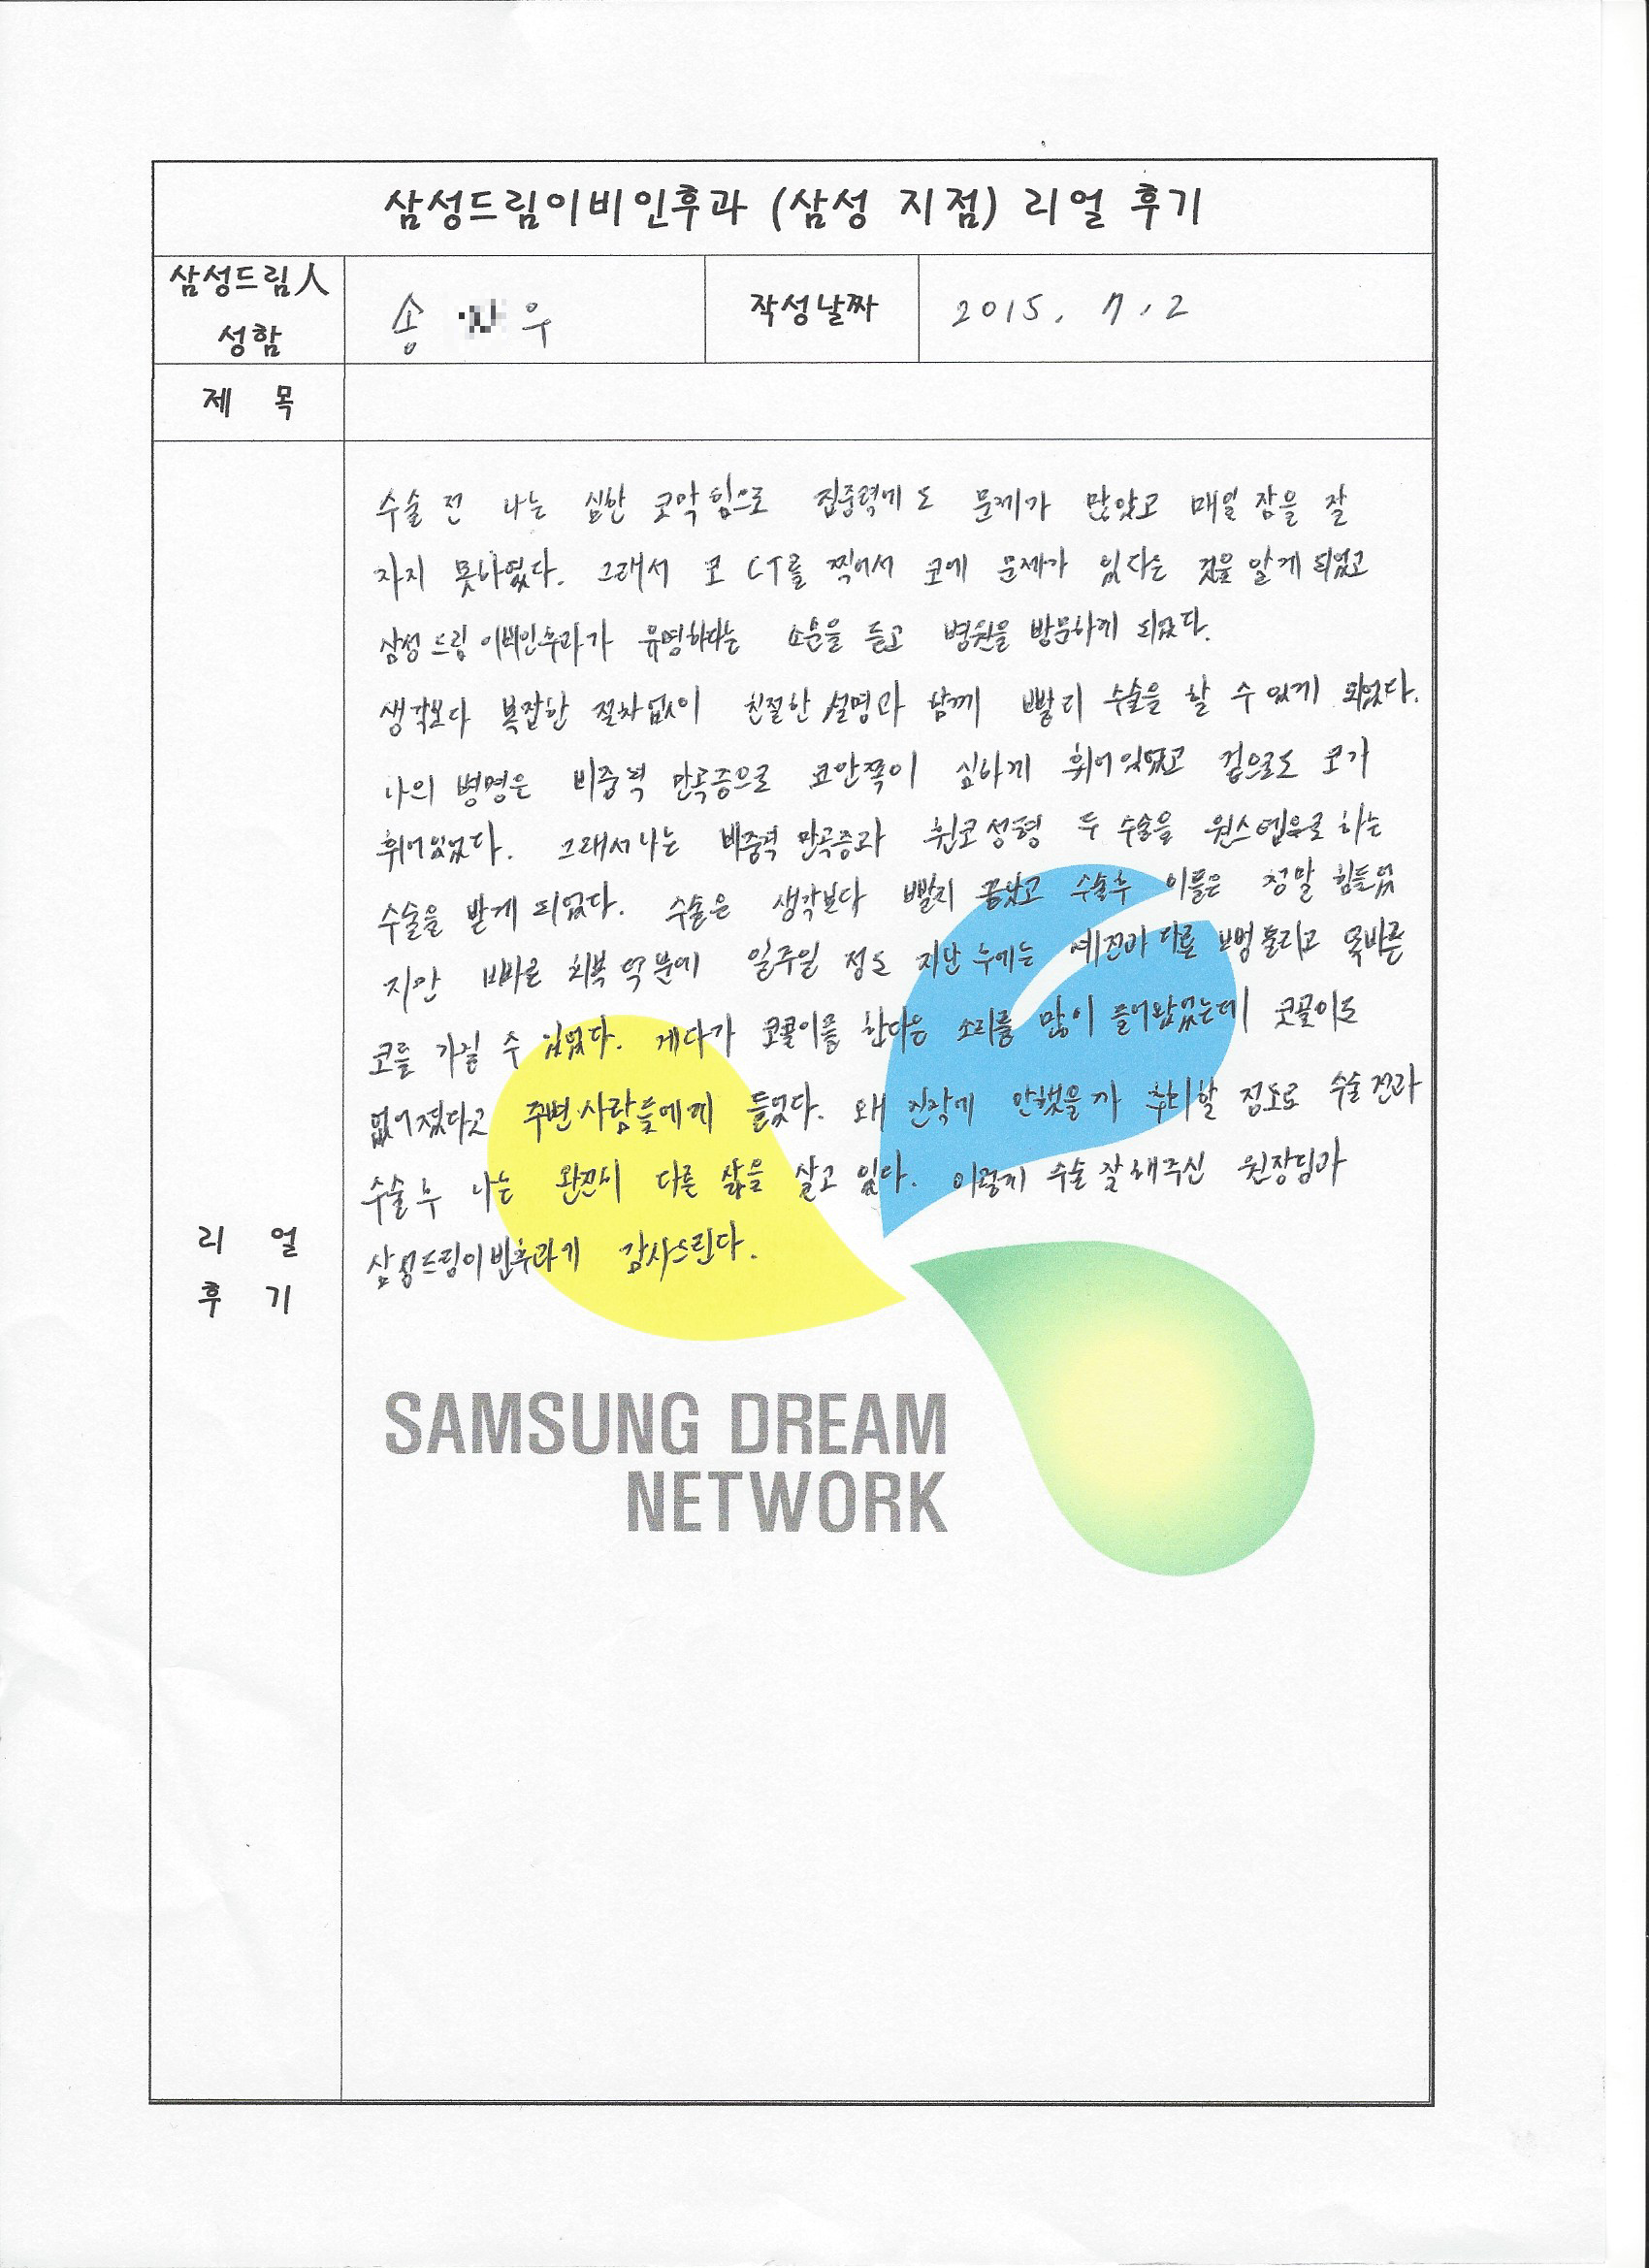 삼성드림이비인후과 (삼성 지점) 리얼 후기
삼성드림人
성함
송 우
작성날짜
2015. 7. 2
제 목
수술 전 나는 심한 코막힘으로 집중력에도 문제가 많았고 매일 잠을 잘
자지 못하였다. 그래서 코 CT를 찍어서 코에 문제가 있다는 것을 알게 되었고
삼성드림이비인후과가 유명하다는 소문을 듣고 병원을 방문하게 되었다.
생각보다 복잡한 절차없이 친절한 설명과 함께 빨리 수술을 할 수 있게 되었다.
나의 병명은 비중격 만곡증으로 코안쪽이 심하게 휘어있었고 겉으로도 코가
휘어있었다. 그래서 나는 비중격 만곡증과 휜코성형 두 수술을 원스텝으로 하는
수술을 받게 되었다. 수술은 생각보다 빨리 끝났고 수술후 이틀은 정말 힘들었
지만 빠른 회복 덕분에 일주일 정도 지난 후에는 예전과 다르게 뻥 뚫리고 똑바른
코를 가질 수 있었다. 게다가 코골이를 한다는 소리를 많이 들어왔었는데 코골이도
없어졌다고 주변사람들에게 들었다. 왜 진작에 안했을까 후회할 정도로 수술 전과
수술 후 나는 완전히 다른 삶을 살고 있다. 이렇게 수술 잘해주신 원장님과
삼성드림이비인후과에 감사드린다.
리 얼
후 기
SAMSUNG DREAM
NETWORK